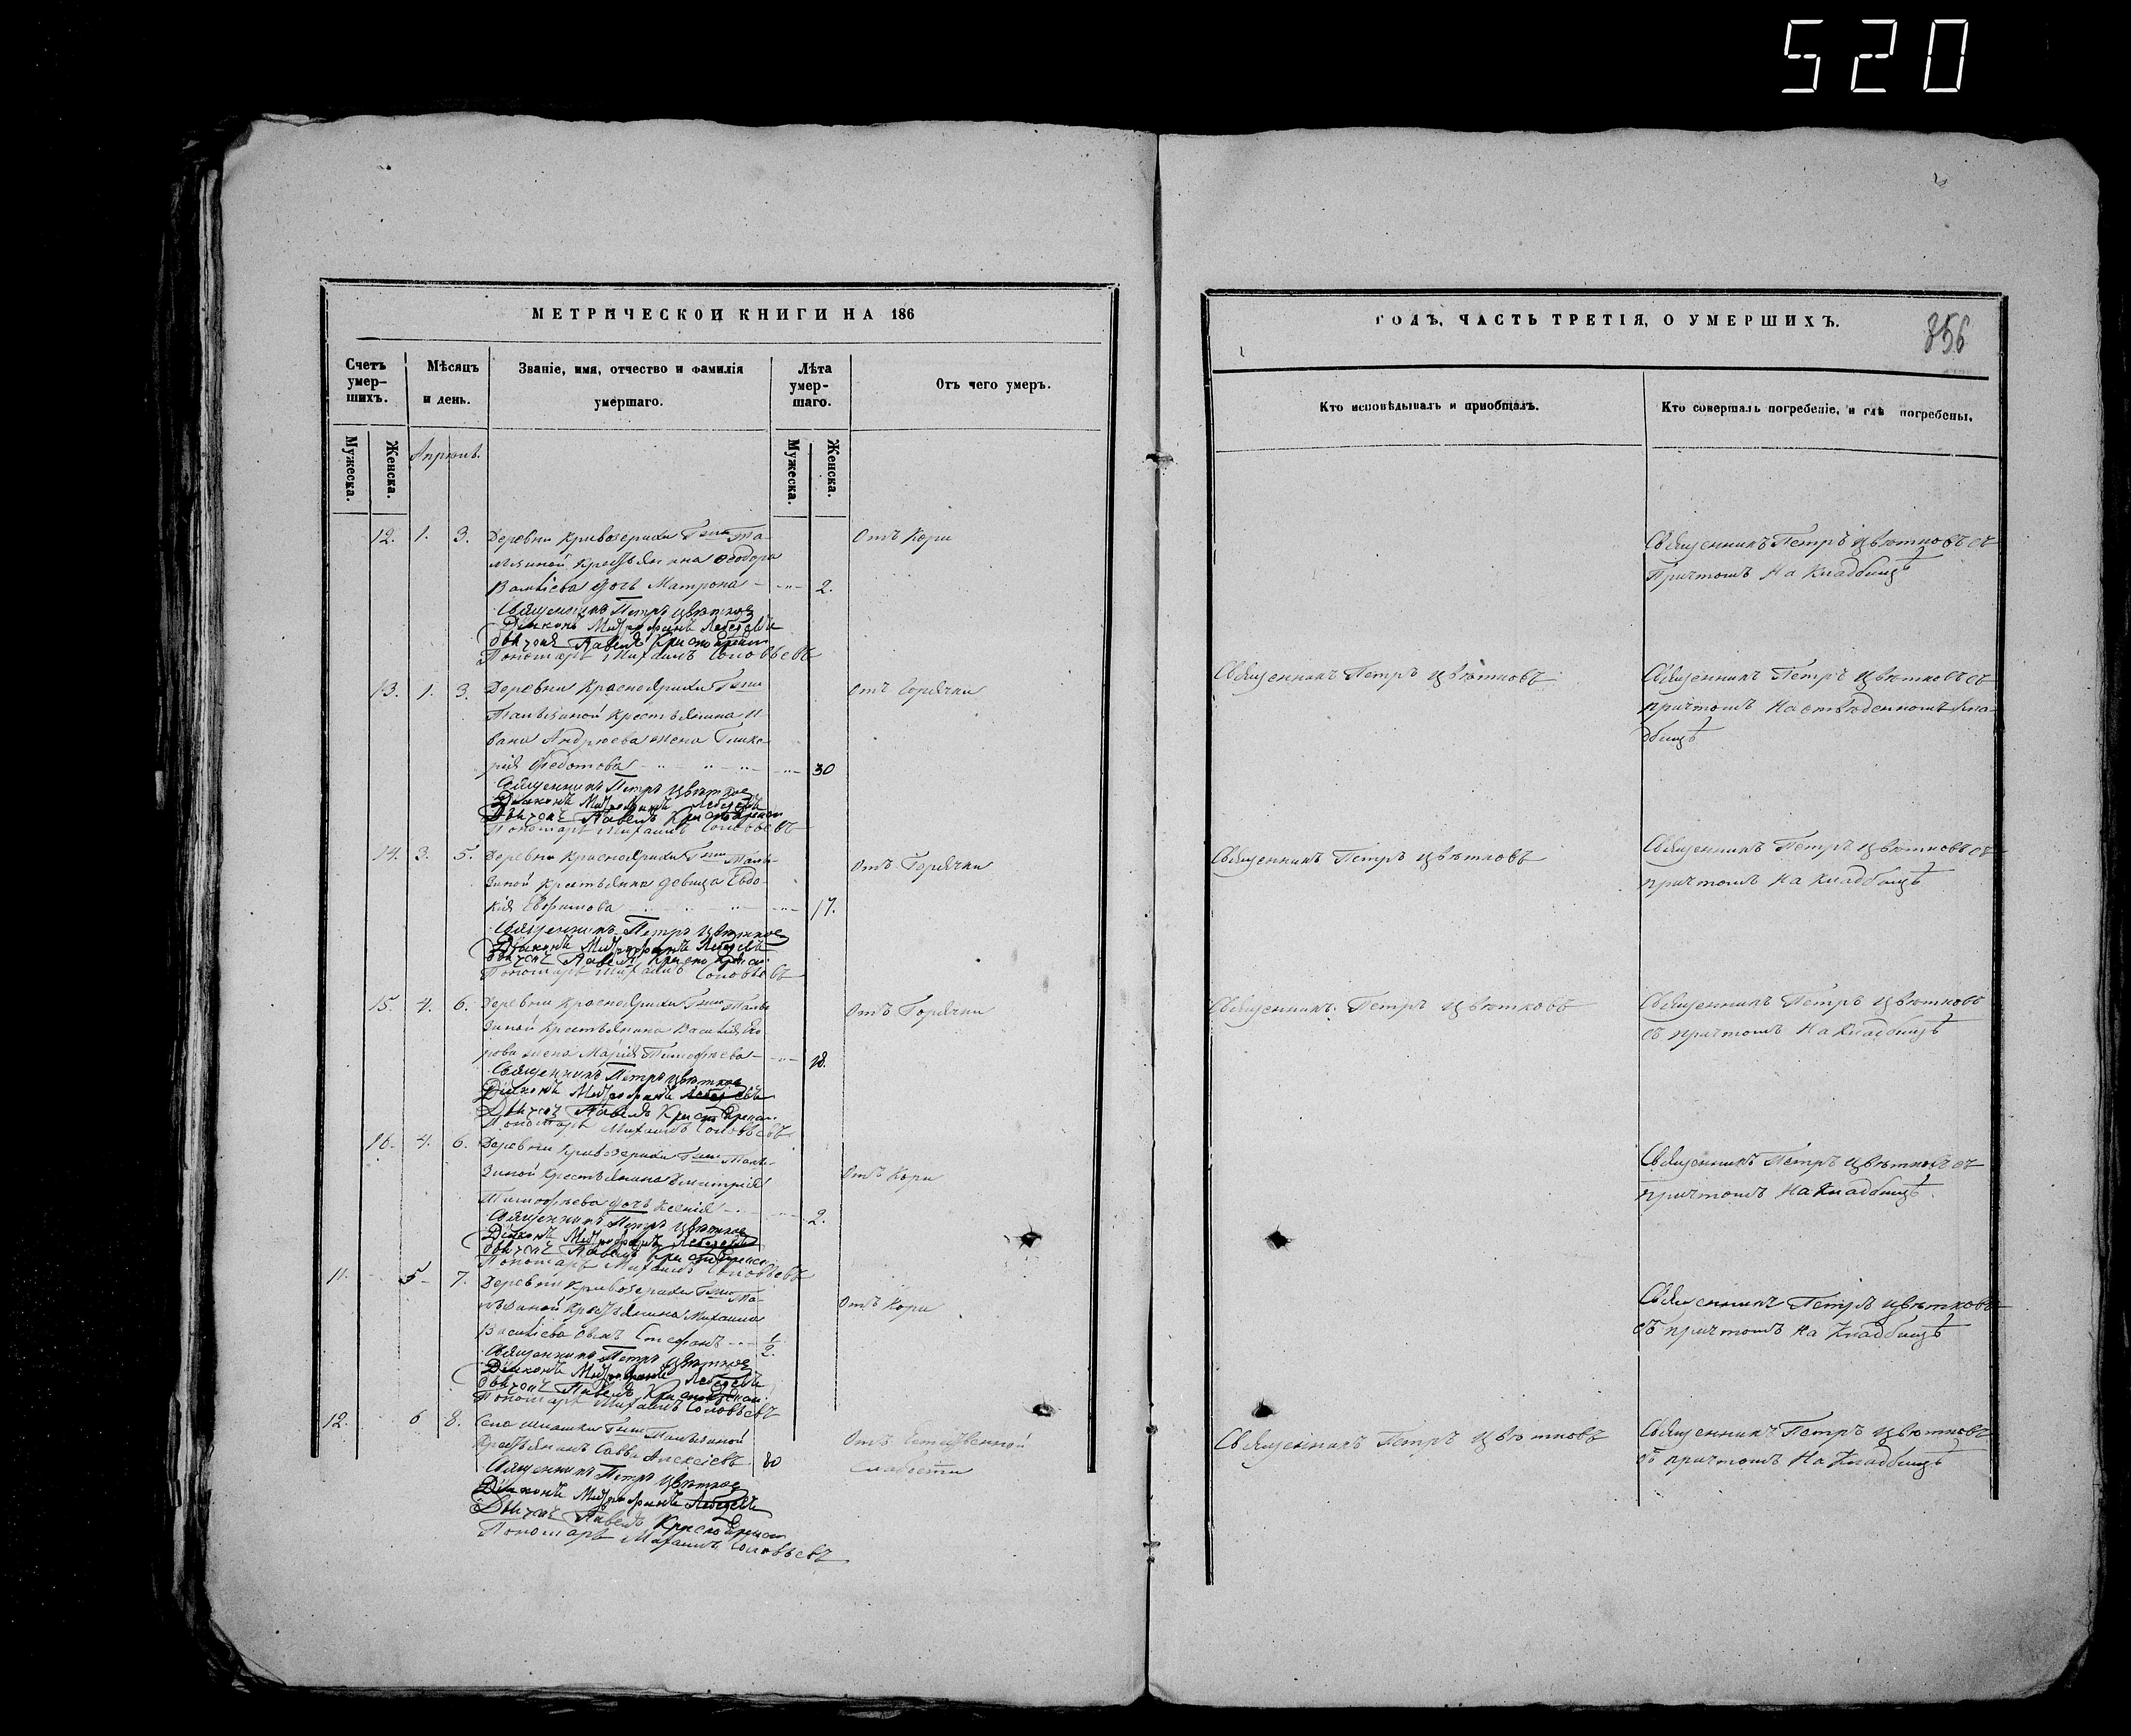 520
МЕТРИЧЕСКОЙ КНИГИ НА 186
Счетъ умер-
шихъ.
Мѣсяцъ
и день.
Званіе, имя, отчество и фамилія
умершаго.
Лѣта
умер-
шаго.
Отъ чего умеръ.
Мужеска.
Женска.
Апрѣль.
Мужеска.
Женска.
12. 1. 3. Деревни Кривозерихи
крестьянина Ѳеодора
дочь Матрона 2.
Отъ Кори
Священникъ Петръ Цвѣтков
Діаконъ Митрофанъ Лебедевъ
Павелъ
Пономарь Михаилъ Соловьевъ
13. 1. 3. Деревни Красноярихи
крестьянина И-
вана Андреева жена Глике-
рія Федотова 30
Отъ Горячки
Священникъ Петръ Цвѣтков
Діаконъ Митрофанъ Лебедевъ
Павелъ
Пономарь Михаилъ Соловьевъ
14. 3. 5. Деревни Красноярихи
зиной крестьянка девица Евдо-
кія 17.
Отъ Горячки
Священникъ Петръ Цвѣтков
Діаконъ Митрофанъ Лебедевъ
Павелъ
Пономарь Михаилъ Соловьевъ
15. 4. 6. Деревни Красноярихи
зиной крестьянина Василія
рова жена Марія Тимофѣева
Отъ Горячки
Священникъ Петръ Цвѣтков
Діаконъ Митрофанъ Лебедевъ
Павелъ
Пономарь Михаилъ Соловьевъ
16. 4. 6. Деревни Кривозерихи
зиной крестьянина Дмитрія
Тимофѣева дочь Ксенія 2.
Отъ Кори
Священникъ Петръ Цвѣтков
Діаконъ Митрофанъ Лебедевъ
Павелъ
Пономарь Михаилъ Соловьевъ
11. 5. 7. Деревни Кривозерихи
крестьянина Михаила
Васильева сынъ Стефанъ 1/2.
Отъ Кори
Священникъ Петръ Цвѣтков
Діаконъ Митрофанъ Лебедевъ
Павелъ
Пономарь Михаилъ Соловьевъ
12. 6 8. Села
Крестьянинъ Савва Алексіевъ 80
Отъ Естественной
слабости
Священникъ Петръ Цвѣтков
Діаконъ Митрофанъ Лебедевъ
Павелъ
Пономарь Михаилъ Соловьевъ
ГОДЪ, ЧАСТЬ ТРЕТІЯ, О УМЕРШИХЪ.
856
Кто исповѣдывалъ и приобщалъ.
Кто совершалъ погребеніе, и гдѣ погребены.
Священникъ Петръ Цвѣтковъ съ
Причтомъ На Кладбищѣ
Священникъ Петръ Цвѣтковъ
Священникъ Петръ Цвѣтковъ съ
причтомъ На отведенномъ Кла-
дбищѣ
Священникъ Петръ Цвѣтковъ
Священникъ Петръ Цвѣтковъ съ
причтомъ На Кладбищѣ
Священникъ Петръ Цвѣтковъ
Священникъ Петръ Цвѣтковъ
съ причтомъ На Кладбищѣ
Священникъ Петръ Цвѣтковъ съ
причтомъ На Кладбищѣ
Священникъ Петръ Цвѣтковъ
съ причтомъ на Кладбищѣ
Священникъ Петръ Цвѣтковъ
Священникъ Петръ Цвѣтковъ
съ причтомъ На Кладбищѣ